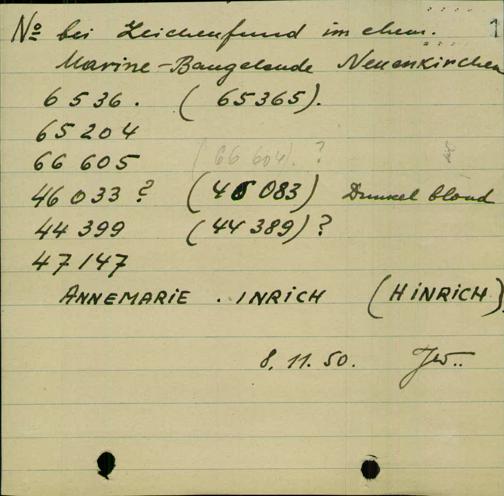 1
No bei Leichenfund im ehem.
Marine-Baugelände Neuenkirchen
6536. (65365).
65204
66605 (66604). ?
46033 ? (46083) Dunkelblond
44399 (44389) ?
47147
ANNEMARIE . INRICH (HINRICH)
8.11.50.